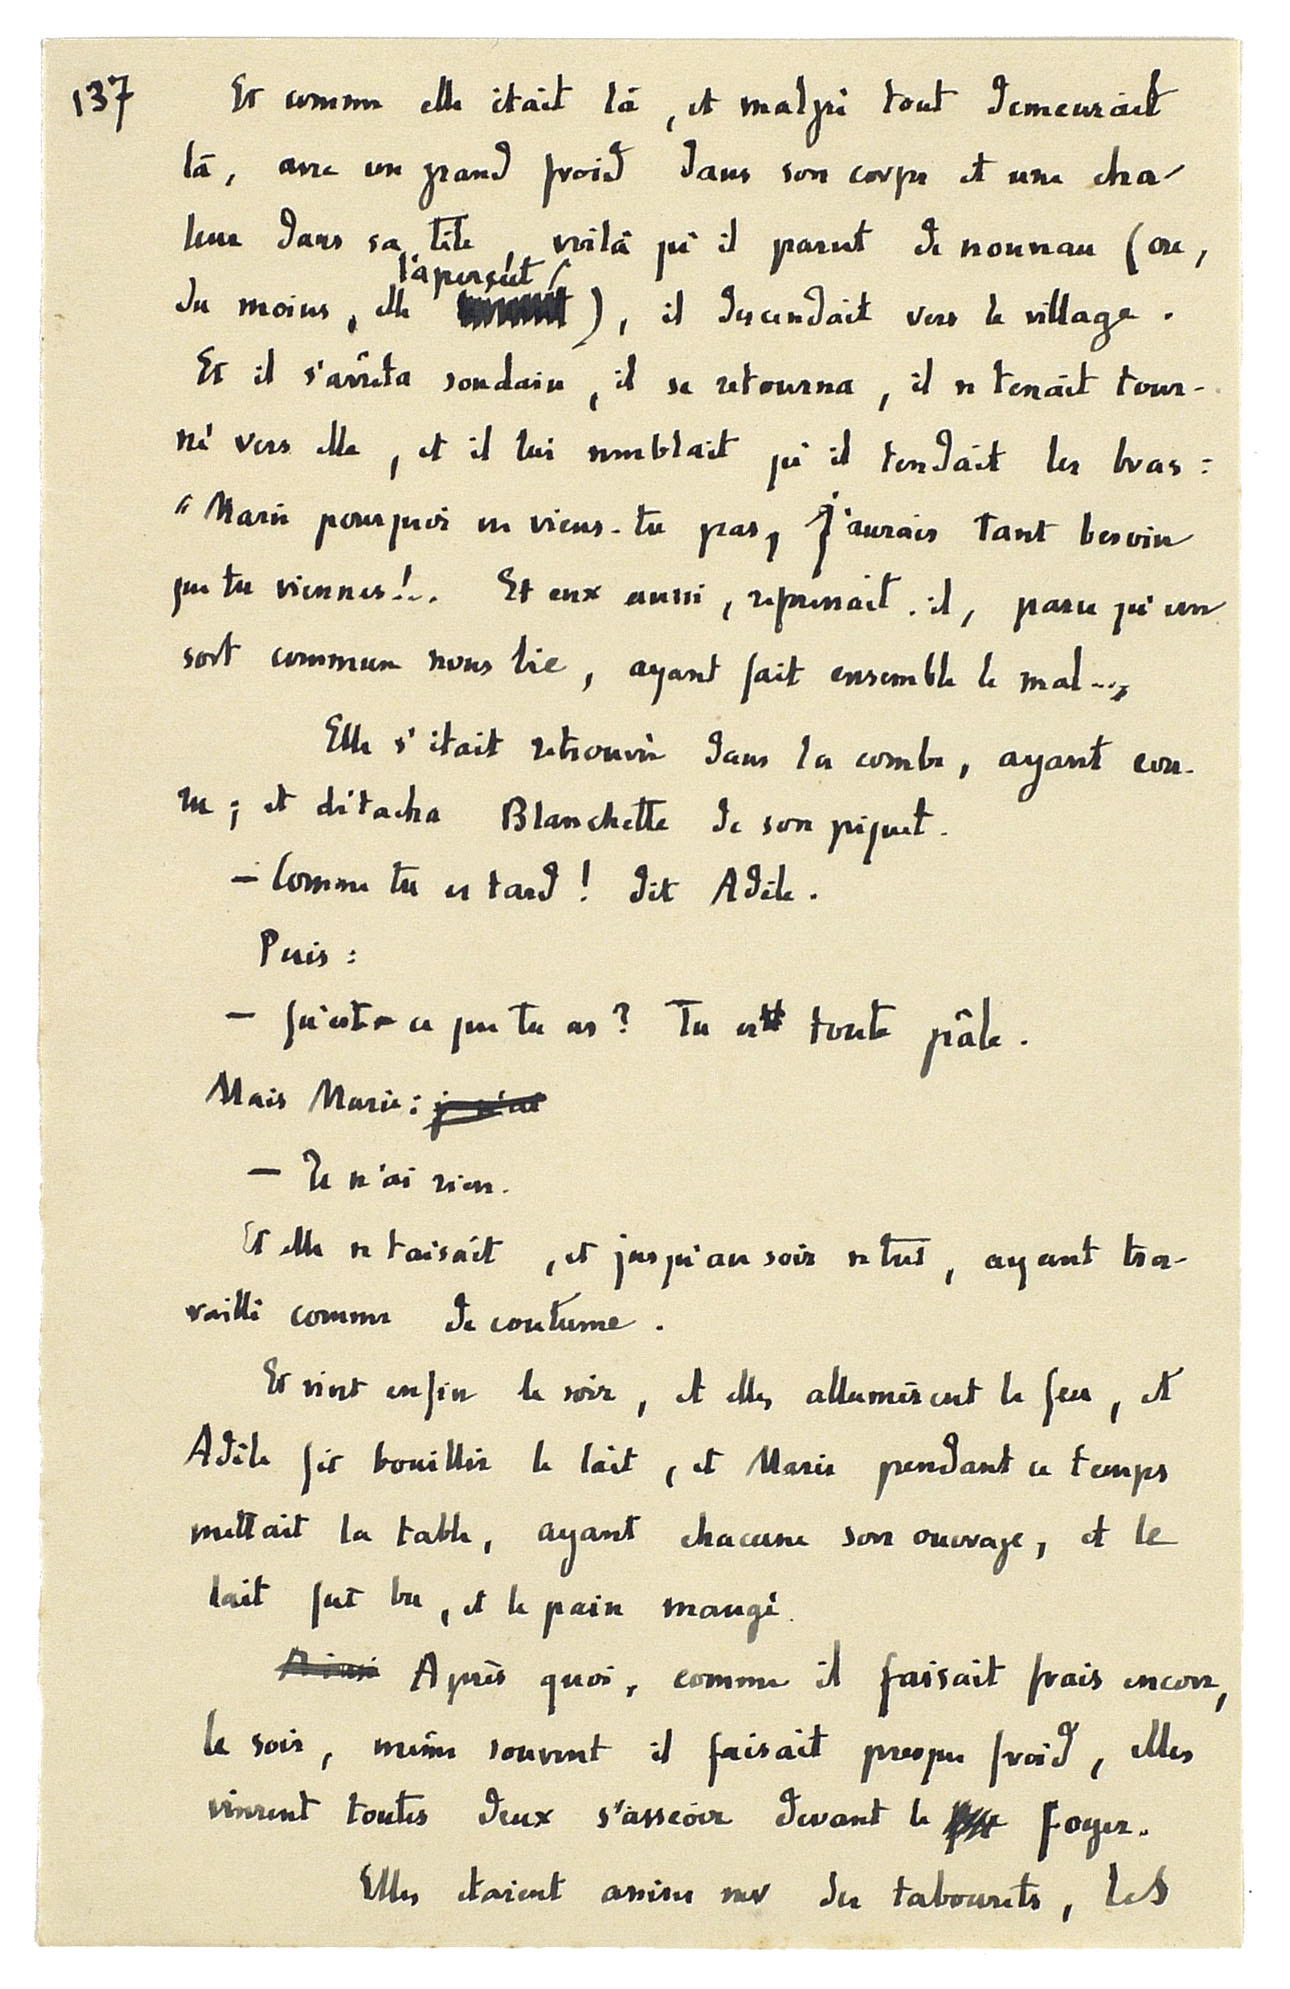 137 Et comme elle était là, et malgré tout demeurait
là, avec un grand froid dans son corps et une cha-
leur dans sa tête, voilà qu'il parut de nouveau (ou,
l'aperçut
du moins, elle ), il descendait vers le village.
Et il s'arrêta soudain, il se retourna, il se tenait tour-
né vers elle, et il lui semblait qu'il tendait les bras :
"Marie pourquoi ne viens-tu pas, j'aurais tant besoin
que tu viennes!.. Et eux aussi, reprenait-il, parce qu'un
sort commun nous lie, ayant fait ensemble le mal...,
Elle s'était retrouvée dans la combe, ayant cou-
ru ; et détacha Blanchette de son piquet.
— Comme tu es tard ! dit Adèle.
Puis :
— Qu'est-ce que tu as ? Tu es toute pâle.
Mais Marie : je n'ai
— Je n'ai rien.
Et elle se taisait, et jusqu'au soir se tut, ayant tra-
vaillé comme de coutume.
Et vint enfin le soir, et elles allumèrent le feu, et
Adèle fit bouillir le lait, et Marie pendant ce temps
mettait la table, ayant chacune son ouvrage, et le
lait fut bu, et le pain mangé.
Ainsi Après quoi, comme il faisait frais encore,
le soir, même souvent il faisait presque froid, elles
vinrent toutes deux s'asseoir devant le foyer.
Elles étaient assises sur des tabourets, les